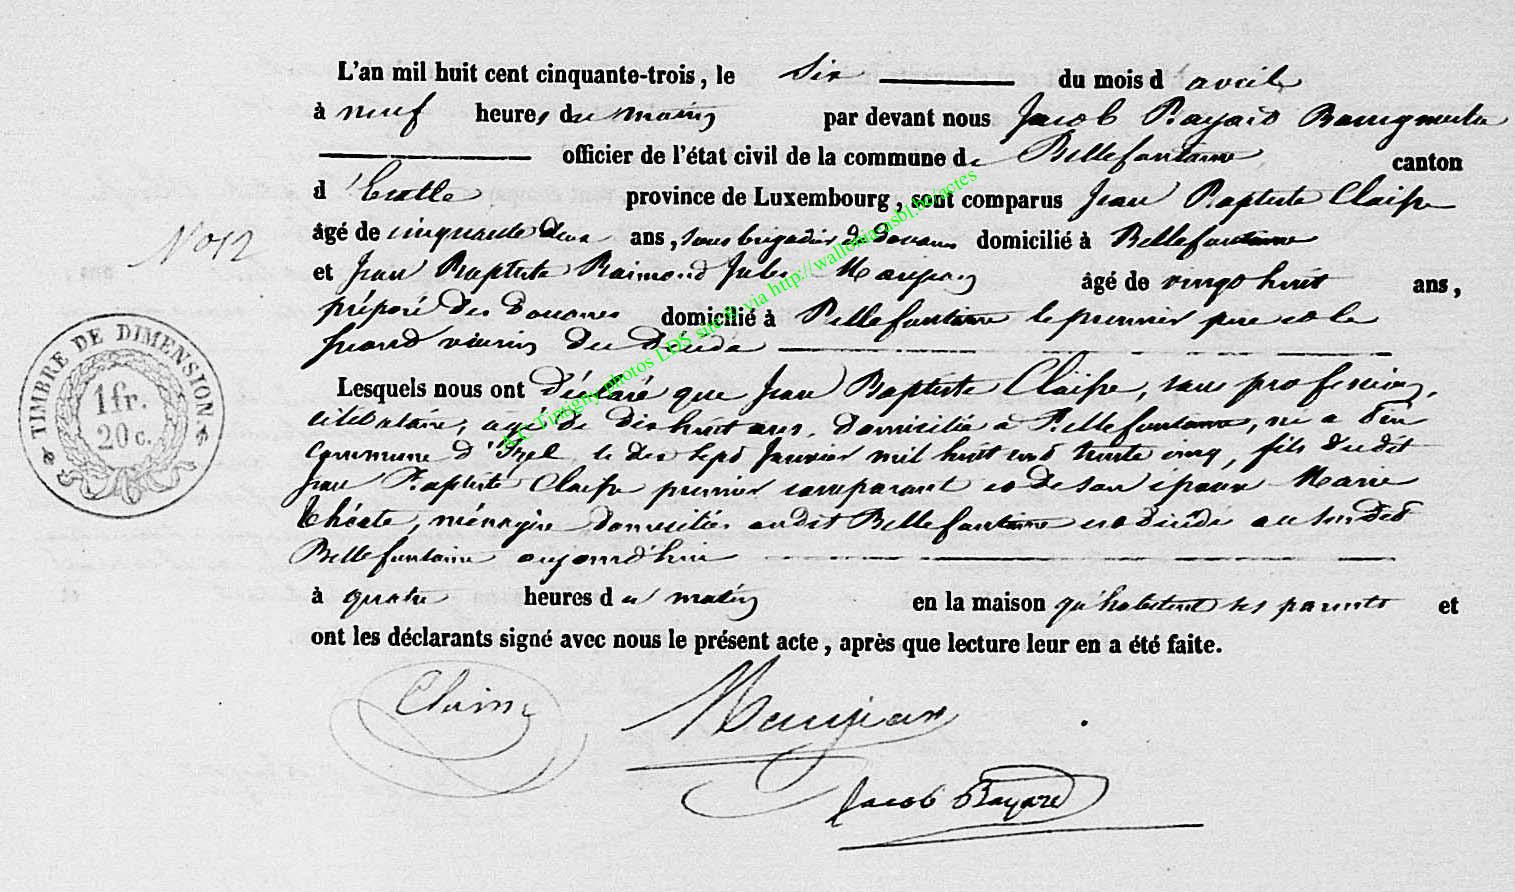 L'an mil huit cent cinquante-trois, le six du mois d avril
à neuf heures du matin par devant nous Jacob Bayard Bourgmestre
officier de l'état civil de la commune de Bellefontaine canton
d' Etalle province de Luxembourg, sont comparus Jean Baptiste Claisse
âgé de cinquante deux ans, sous brigadier de douanes domicilié à Bellefontaine
N° 12
et Jean Baptiste Raimond Jules Maujean âgé de vingt huit ans,
préposé des Douanes domicilié à Bellefontaine le premier père et le
second voisin du décédé
Lesquels nous ont déclaré que Jean Baptiste Claisse, sans profession,
célibataire, agé de dix huit ans, domicilié à Bellefontaine, né a
commune d'Izel le dix sept Janvier mil huit cent trente cinq, fils dudit
Jean Baptiste Claisse premier comparant et de son épouse Marie
ménagère domiciliée audit Bellefontaine est décédé au susdit
Bellefontaine aujourd'hui
à quatre heures du matin en la maison qu'habitent ses parents et
ont les déclarants signé avec nous le présent acte, après que lecture leur en a été faite.
TIMBRE DE DIMENSION
1 fr.
20 c.
Maujean
Jacob Bayard
AE - Tintigny photos LDS via http://wallonia-asbl.be/actes